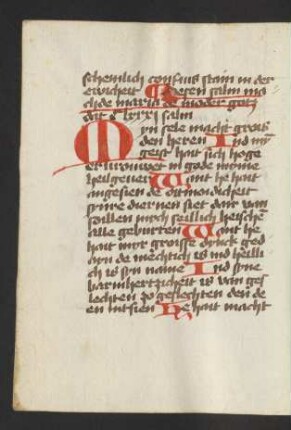 schemlich confuus stain in der
ewicheit Desen salm ma
chde maria de moder gotz
dat is lxxxj salm
Myn sele macht grois
den heren Ind myn
geist hait sich hoge
er vrouwet in gode myme
heilgever Want he hait
angesien de oitmoidicheit
synre diernen siet dair van
soillen mych seillich heischen
alle geburten Want he
hait myr groisse dinck ged
ayn de mechtich is ind heilli
ch is syn name Ind syne
barmhertzicheit is van ges
lechten zo geslechten den de
en intsien He hait macht